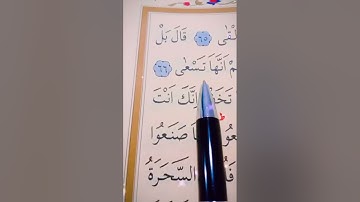 لْقٰى ﴿٦٥﴾ قَالَ بَلْ
اَنَّهَا تَسْعٰى ﴿٦٦﴾
اِنَّكَ اَنْتَ
صَنَعُوا
السَّحَرَةُ